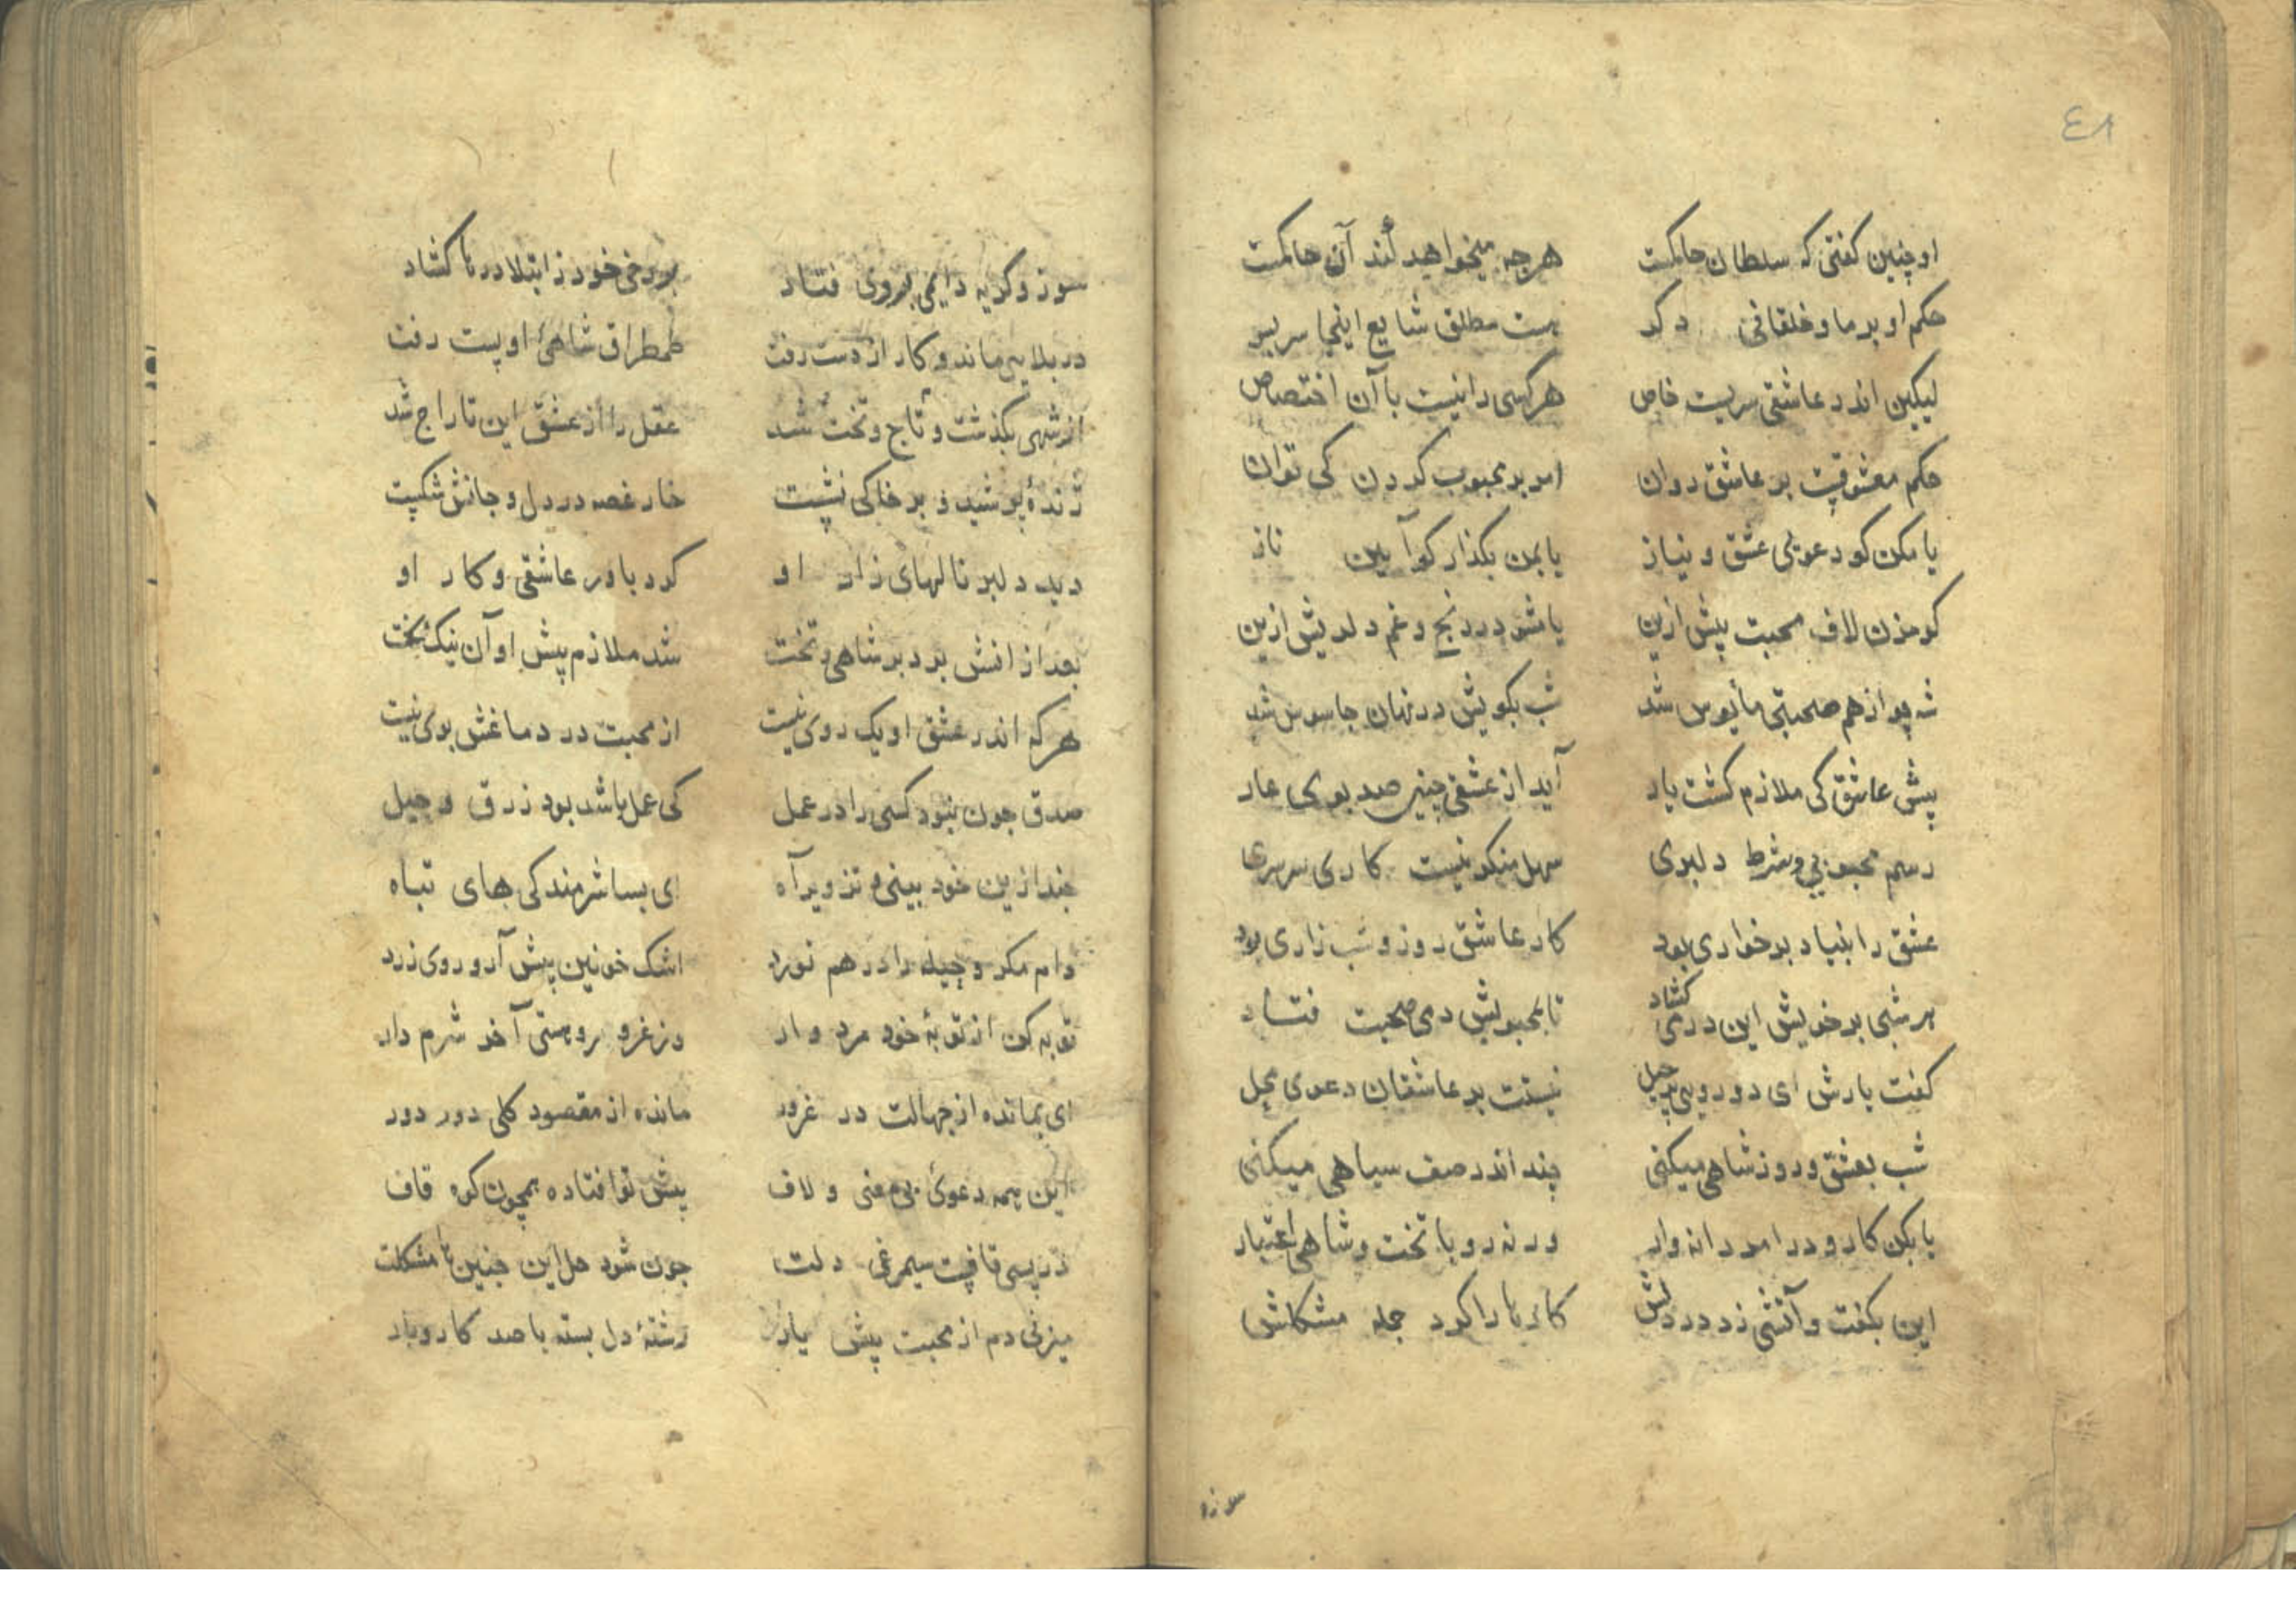 ٤٨
او چنین کفتی که سلطان حاکمست هرجه میخواهد کند آن حاکمست
حکم او بر ما و خلقانی دکر هست مطلق شایع اینجا سربسر
لیکن اندر عاشقی سریست خاص هرکسی را نیست با آن اختصاص
حکم معشوقیت بر عاشق روان امر بر محبوب کردن کی توان
یا مکن کو دعوی عشق و نیاز یا بمن بکذار کو آیین ناز
کو مزن لاف محبت پیش ازین باش در رنج و غم دلریش ازین
شه چو از هم صحبتی مأیوس شد شب بکویش در نهان جاسوس شد
پیش عاشق کی ملازم کشت یار آید از عشقی چنین صد بوی عار
رسم محبوبی و شرط دلبری سهل منکر نیست کاری سرسری
عشق را بنیاد بر خواری بود کار عاشق روز و شب زاری بود
هر شبی بر خویش این در می کشاد تا بمحبوبش دمی صحبت فتاد
کفت یارش ای دورویی پر حیل نیستت بر عاشقان دعوی محل
شب بعشق و روز شاهی میکنی چند اندر صف سیاهی میکنی
یا بکن کار و درا مردانه وار ورنه رو با تخت و شاهی اعتبار
این بکفت و آتشی زد در دلش کار ما را کرد جمله مشکلش
سوز و
سوز و کریه دایمی بروی فتاد بر رخ خود ز ابتلا درها کشاد
در بلایی ماند و کار از دست رفت طمطراق شاهیٔ او پست رفت
از شهی بکذشت و تاج و تخت شد عقل را از عشق این تاراج شد
ژندهٔ پوشید و بر خاکی نشست خار غصه در دل و جانش شکست
دید دلبر نالهای زار او کرد باور عاشقی و کار او
بعد از انش برد بر شاهی و تخت شد ملازم پیش او آن نیک بخت
هرکه اندر عشق او یک روی نیست از محبت در دماغش بوی نیست
صدق جون نبود کسی را در عمل کی عمل باشد بود زرق و حیل
جند ازین خود بینی و تزویر آه ای بسا شرمندکی های تباه
دام مکر و حیله را در هم نورد اشک خونین پیش آر و روی زرد
توبه کن از توبهٔ خود مرد وار وز غرور و هستی آخر شرم دار
ای بمانده از جهالت در غرور مانده از مقصود کلی دور دور
این همه دعویٔ بی معنی و لاف پیش تو افتاده همچون کوه قاف
در پسی قافیت سیمرغی دلت جون شود حل این جنین ها مشکلت
میزنی دم از محبت پیش یار رشتهٔ دل بسته با صد کار و بار